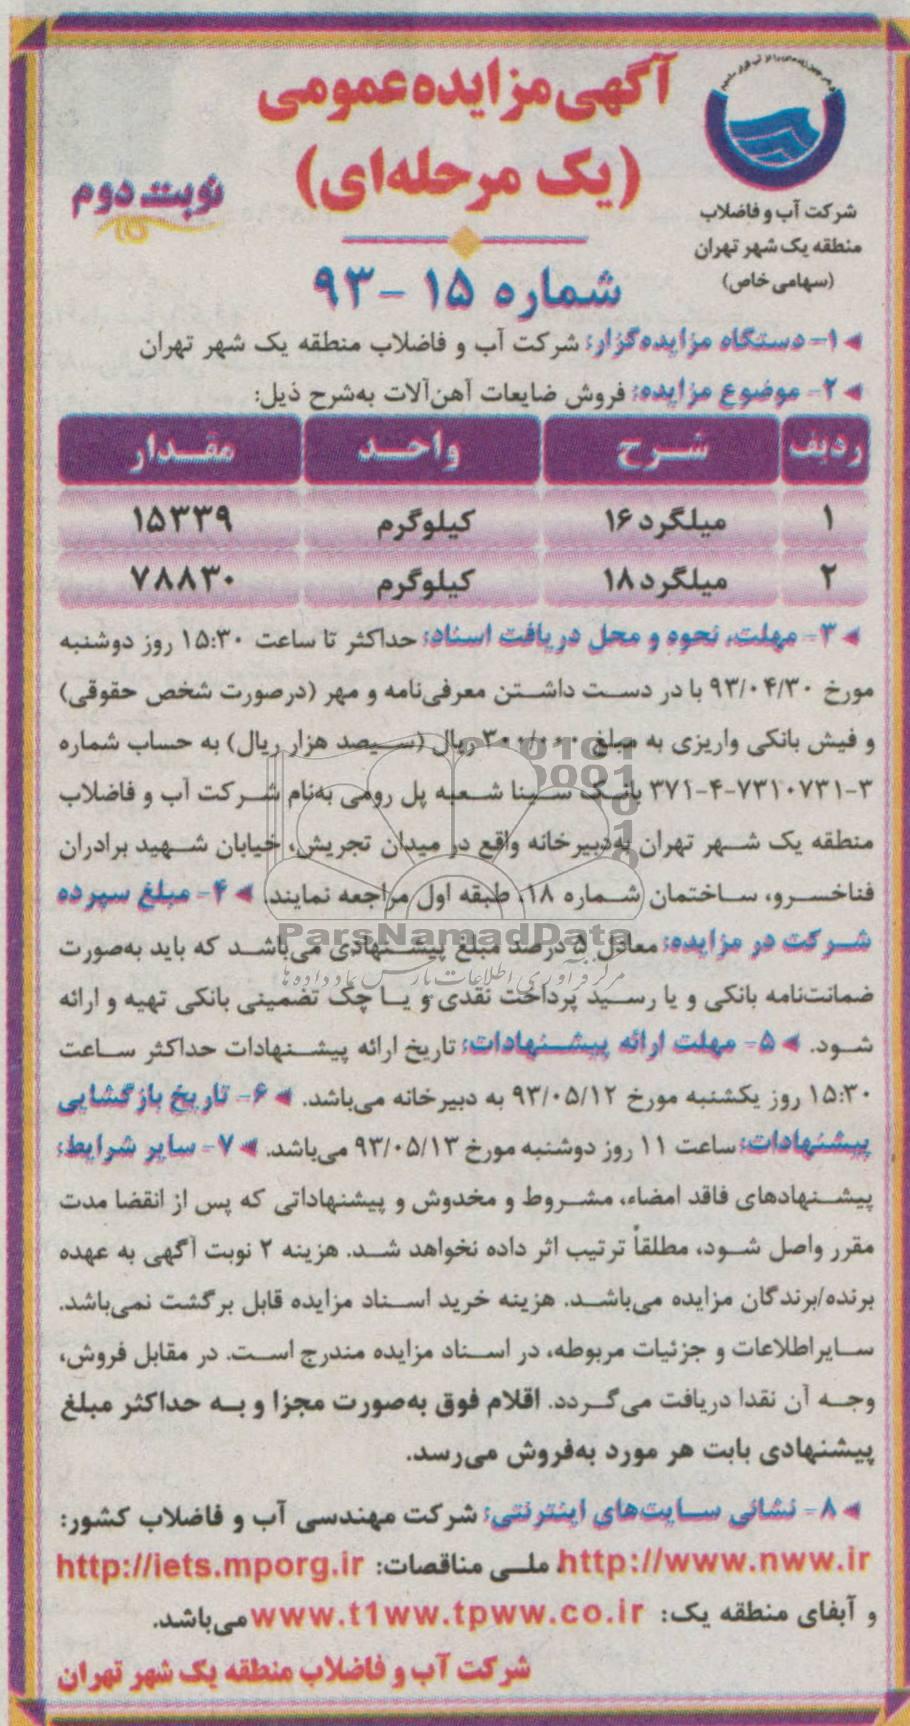 آگهی مزایده عمومی
(یک مرحله‌ای)
نوبت دوم
شرکت آب و فاضلاب
منطقه یک شهر تهران
(سهامی خاص)
شماره ۱۵ -۹۳
۱- دستگاه مزایده‌گزار: شرکت آب و فاضلاب منطقه یک شهر تهران
۲- موضوع مزایده: فروش ضایعات آهن‌آلات به‌شرح ذیل:
ردیف شرح واحد مقدار
۱ میلگرد ۱۶ کیلوگرم ۱۵۳۳۹
۲ میلگرد ۱۸ کیلوگرم ۷۸۸۳۰
۳- مهلت، نحوه و محل دریافت اسناد: حداکثر تا ساعت ۱۵:۳۰ روز دوشنبه
مورخ ۹۳/۰۴/۳۰ با در دست داشتن معرفی‌نامه و مهر (درصورت شخص حقوقی)
و فیش بانکی واریزی به مبلغ ۳۰۰/۰۰۰ ریال (سیصد هزار ریال) به حساب شماره
۳۷۱-۴-۷۳۱۰۷۳۱-۳ بانک سینا شعبه پل رومی به‌نام شرکت آب و فاضلاب
منطقه یک شهر تهران به‌دبیرخانه واقع در میدان تجریش، خیابان شهید برادران
فناخسرو، ساختمان شماره ۱۸، طبقه اول مراجعه نمایند. ۴- مبلغ سپرده
شرکت در مزایده: معادل ۵ درصد مبلغ پیشنهادی می‌باشد که باید به‌صورت
ضمانت‌نامه بانکی و یا رسید پرداخت نقدی و یا چک تضمینی بانکی تهیه و ارائه
شود. ۵- مهلت ارائه پیشنهادات: تاریخ ارائه پیشنهادات حداکثر ساعت
۱۵:۳۰ روز یکشنبه مورخ ۹۳/۰۵/۱۲ به دبیرخانه می‌باشد. ۶- تاریخ بازگشایی
پیشنهادات: ساعت ۱۱ روز دوشنبه مورخ ۹۳/۰۵/۱۳ می‌باشد. ۷- سایر شرایط:
پیشنهادهای فاقد امضاء، مشروط و مخدوش و پیشنهاداتی که پس از انقضا مدت
مقرر واصل شود، مطلقاً ترتیب اثر داده نخواهد شد. هزینه ۲ نوبت آگهی به عهده
برنده/برندگان مزایده می‌باشد. هزینه خرید اسناد مزایده قابل برگشت نمی‌باشد.
سایراطلاعات و جزئیات مربوطه، در اسناد مزایده مندرج است. در مقابل فروش،
وجه آن نقدا دریافت می‌گردد. اقلام فوق به‌صورت مجزا و به حداکثر مبلغ
پیشنهادی بابت هر مورد به‌فروش می‌رسد.
۸- نشانی سایت‌های اینترنتی: شرکت مهندسی آب و فاضلاب کشور:
http://www.nww.ir، ملی مناقصات: http://iets.mporg.ir
و آبفای منطقه یک: www.t1ww.tpww.co.ir می‌باشد.
شرکت آب و فاضلاب منطقه یک شهر تهران
ParsNamadData
مرکز فرآوری اطلاعات پارس نماد داده‌ها